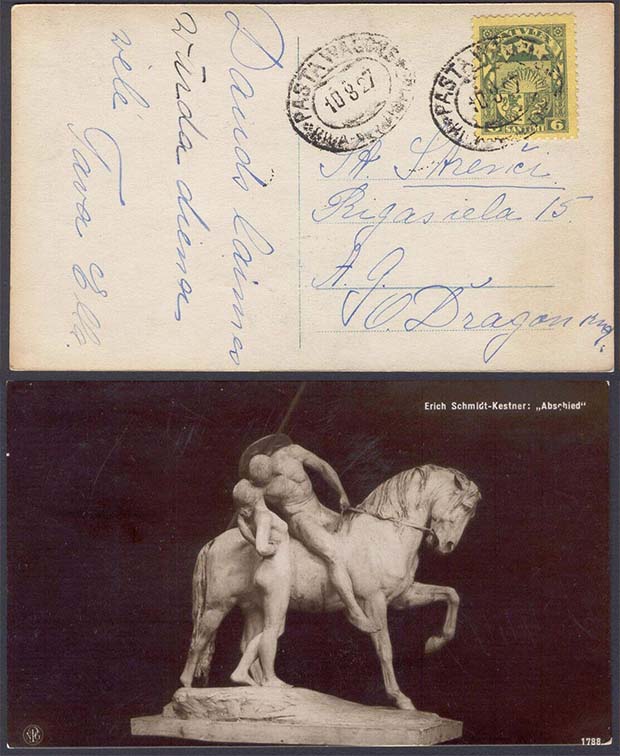 Daudz laimes
vārda dienas
vēlē
Tava Ella.
PASTA VAGONS
10.8.27
PASTA VAGONS
10.8.27
LATVIJA
6 SANTIMI 6
St. Strenči
Rigas iela 15.
A. g.
O. Dragon
Erich Schmidt-Kestner: „Abschied"
NPG
1788